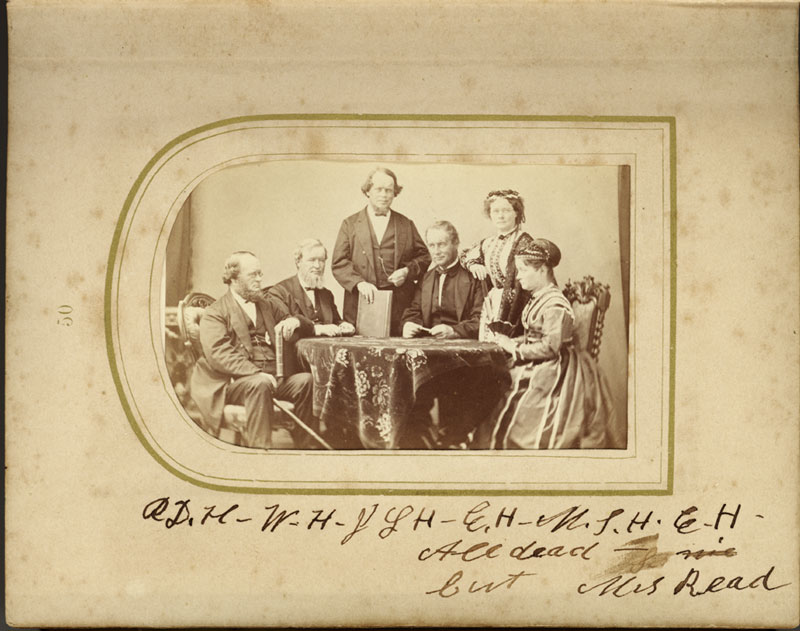 50
R.D.H - W-H - J S H - E.H - M.S.H. E-H -
All dead -
but Mrs Read